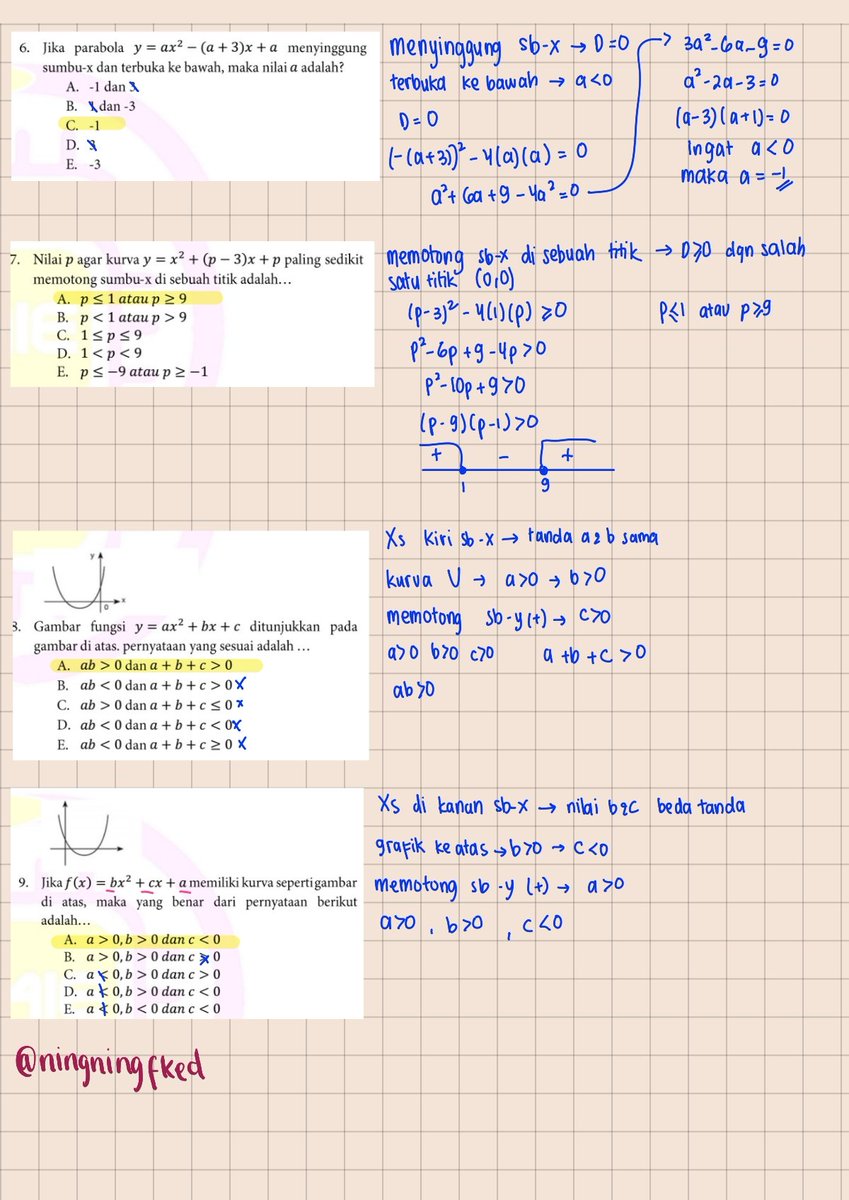 6. Jika parabola y = ax² − (a + 3)x + a menyinggung
sumbu-x dan terbuka ke bawah, maka nilai a adalah?
A. -1 dan 3
B. 1 dan -3
C. -1
D. 1
E. -3
menyinggung sb-x → D=0
terbuka ke bawah → a<0
D=0
(-(a+3))² - 4(a)(a) = 0
a²+6a+9-4a²=0
→ 3a²-6a-9=0
a²-2a-3=0
(a-3)(a+1)=0
Ingat a<0
maka a=-1
7. Nilai p agar kurva y = x² + (p − 3)x + p paling sedikit
memotong sumbu-x di sebuah titik adalah…
A. p ≤ 1 atau p ≥ 9
B. p < 1 atau p > 9
C. 1 ≤ p ≤ 9
D. 1 < p < 9
E. p ≤ −9 atau p ≥ −1
memotong sb-x di sebuah titik → D⩾0 dgn salah
satu titik (0,0)
(p-3)² - 4(1)(p) ⩾0
p²-6p+9-4p>0
p²-10p+9>0
(p-9)(p-1)>0
+ - +
1 9
P⩽1 atau p⩾9
y
x
0
8. Gambar fungsi y = ax² + bx + c ditunjukkan pada
gambar di atas. pernyataan yang sesuai adalah …
A. ab > 0 dan a + b + c > 0
B. ab < 0 dan a + b + c > 0 x
C. ab > 0 dan a + b + c ≤ 0 x
D. ab < 0 dan a + b + c < 0 x
E. ab < 0 dan a + b + c ≥ 0 x
Xs kiri sb-x → tanda a2b sama
kurva U → a>0 → b>0
memotong sb-y(+) → c>0
a>0 b>0 c>0 a+b+c>0
ab>0
9. Jika f(x) = bx² + cx + a memiliki kurva seperti gambar
di atas, maka yang benar dari pernyataan berikut
adalah…
A. a > 0, b > 0 dan c < 0
B. a > 0, b > 0 dan c > 0
C. a < 0, b > 0 dan c > 0
D. a < 0, b > 0 dan c < 0
E. a < 0, b < 0 dan c < 0
Xs di kanan sb-x → nilai b2c beda tanda
grafik ke atas → b>0 → c<0
memotong sb-y (+) → a>0
a>0, b>0, c<0
@ningningfked